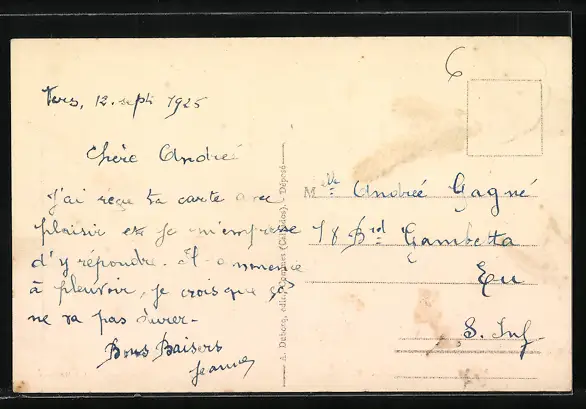 Vers, 12. sept 1925
Chère Andrée
J'ai reçu ta carte avec
plaisir et je m'empresse
d'y répondre. Il commence
à pleuvoir, je crois que ça
ne va pas durer.
Bons Baisers
Jeanne
A. Dubosq, édit., (Calvados). Déposé
6
Melle Andrée Gagné
18 Brd Gambetta
Eu
S. Inf